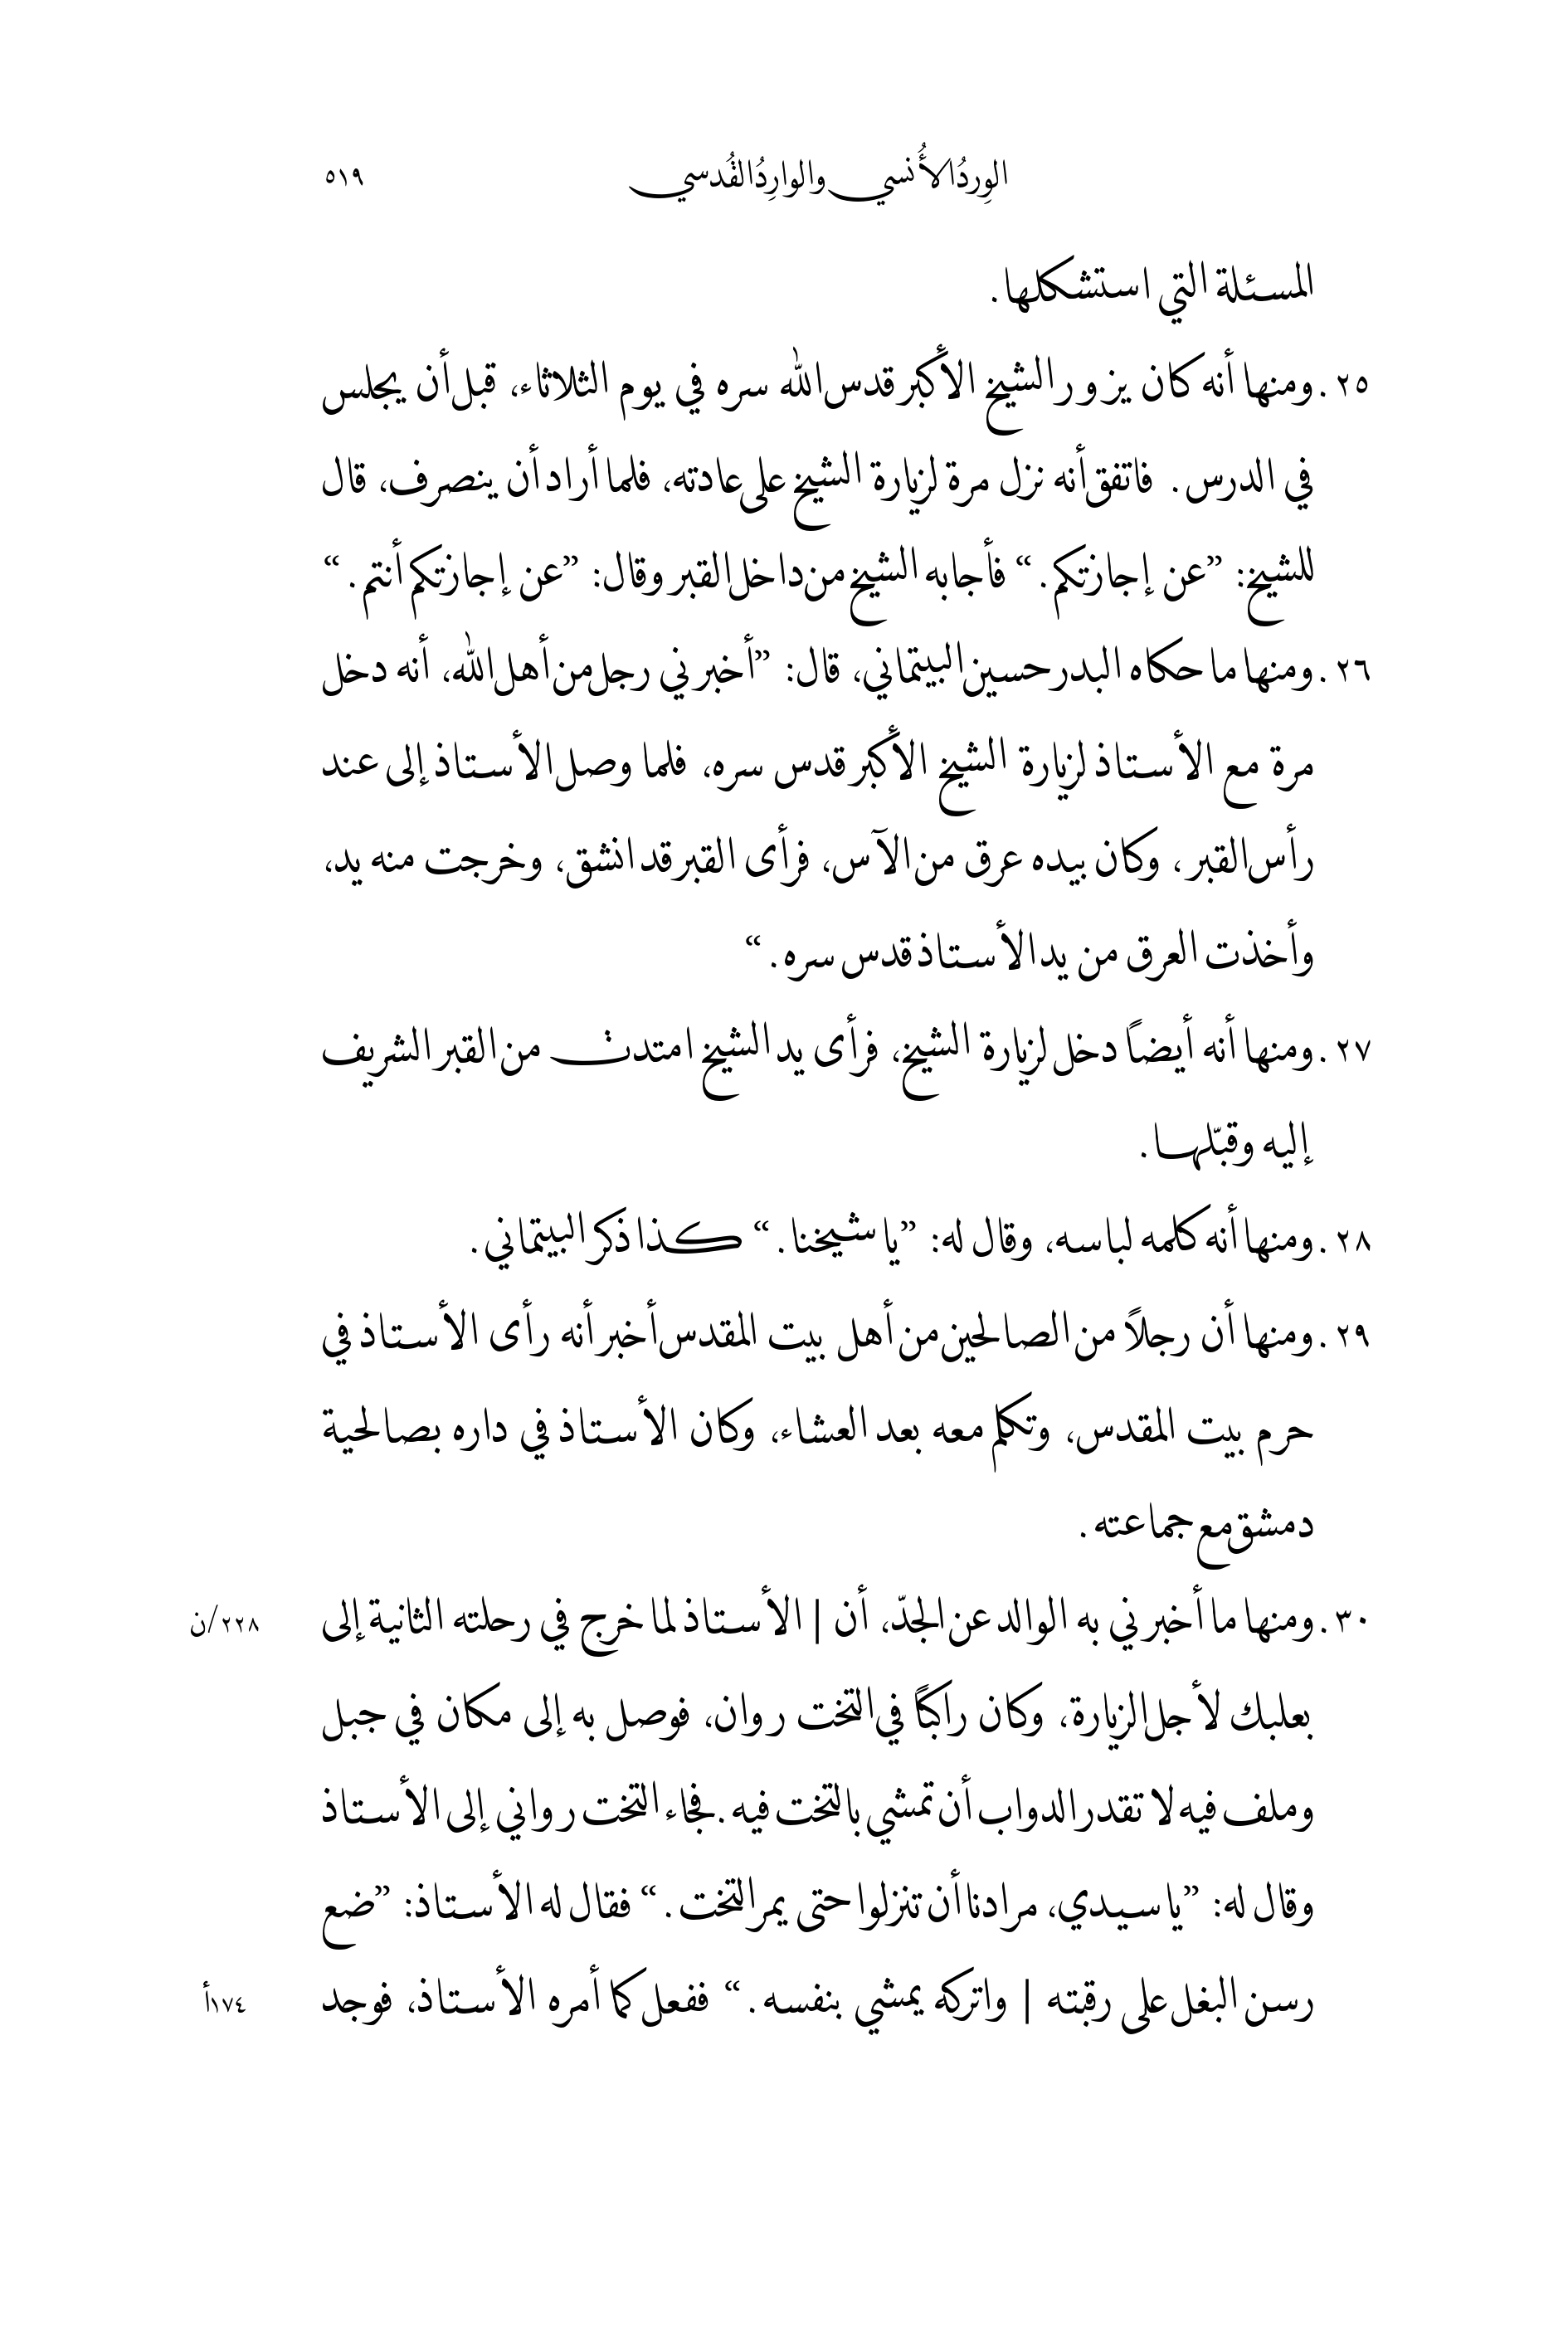 الوِردُ الأُنسي والوارِدُ القُدسي ٥١٩
المسئلة التي استشكلها.
٢٥. ومنها أنه كان يزور الشيخ الأكبر قدس الله سره في يوم الثلاثاء، قبل أن يجلس
في الدرس. فاتفق أنه نزل مرة لزيارة الشيخ على عادته، فلما أراد أن ينصرف، قال
للشيخ: ”عن إجازتكم.“ فأجابه الشيخ من داخل القبر وقال: ”عن إجازتكم أنتم.“
٢٦. ومنها ما حكاه البدر حسين البيتماني، قال: ”أخبرني رجل من أهل الله، أنه دخل
مرة مع الأستاذ لزيارة الشيخ الأكبر قدس سره، فلما وصل الأستاذ إلى عند
رأس القبر، وكان بيده عرق من الآس، فرأى القبر قد انشق، وخرجت منه يد،
وأخذت العرق من يد الأستاذ قدس سره.“
٢٧. ومنها أنه أيضاً دخل لزيارة الشيخ، فرأى يد الشيخ امتدت من القبر الشريف
إليه وقبّلها.
٢٨. ومنها أنه كلمه لباسه، وقال له: ”يا شيخنا.“ كذا ذكر البيتماني.
٢٩. ومنها أن رجلاً من الصالحين من أهل بيت المقدس أخبر أنه رأى الأستاذ في
حرم بيت المقدس، وتكلم معه بعد العشاء، وكان الأستاذ في داره بصالحية
دمشق مع جماعته.
٣٠. ومنها ما أخبرني به الوالد عن الجدّ، أن | الأستاذ لما خرج في رحلته الثانية إلى ٢٢٨/ن
بعلبك لأجل الزيارة، وكان راكبًا في التخت روان، فوصل به إلى مكان في جبل
وملف فيه لا تقدر الدواب أن تمشي بالتخت فيه. فجاء التخت رواني إلى الأستاذ
وقال له: ”يا سيدي، مرادنا أن تنزلوا حتى يمر التخت.“ فقال له الأستاذ: ”ضع
رسن البغل على رقبته | واتركه يمشي بنفسه.“ ففعل كما أمره الأستاذ، فوجد ١٧٤أ